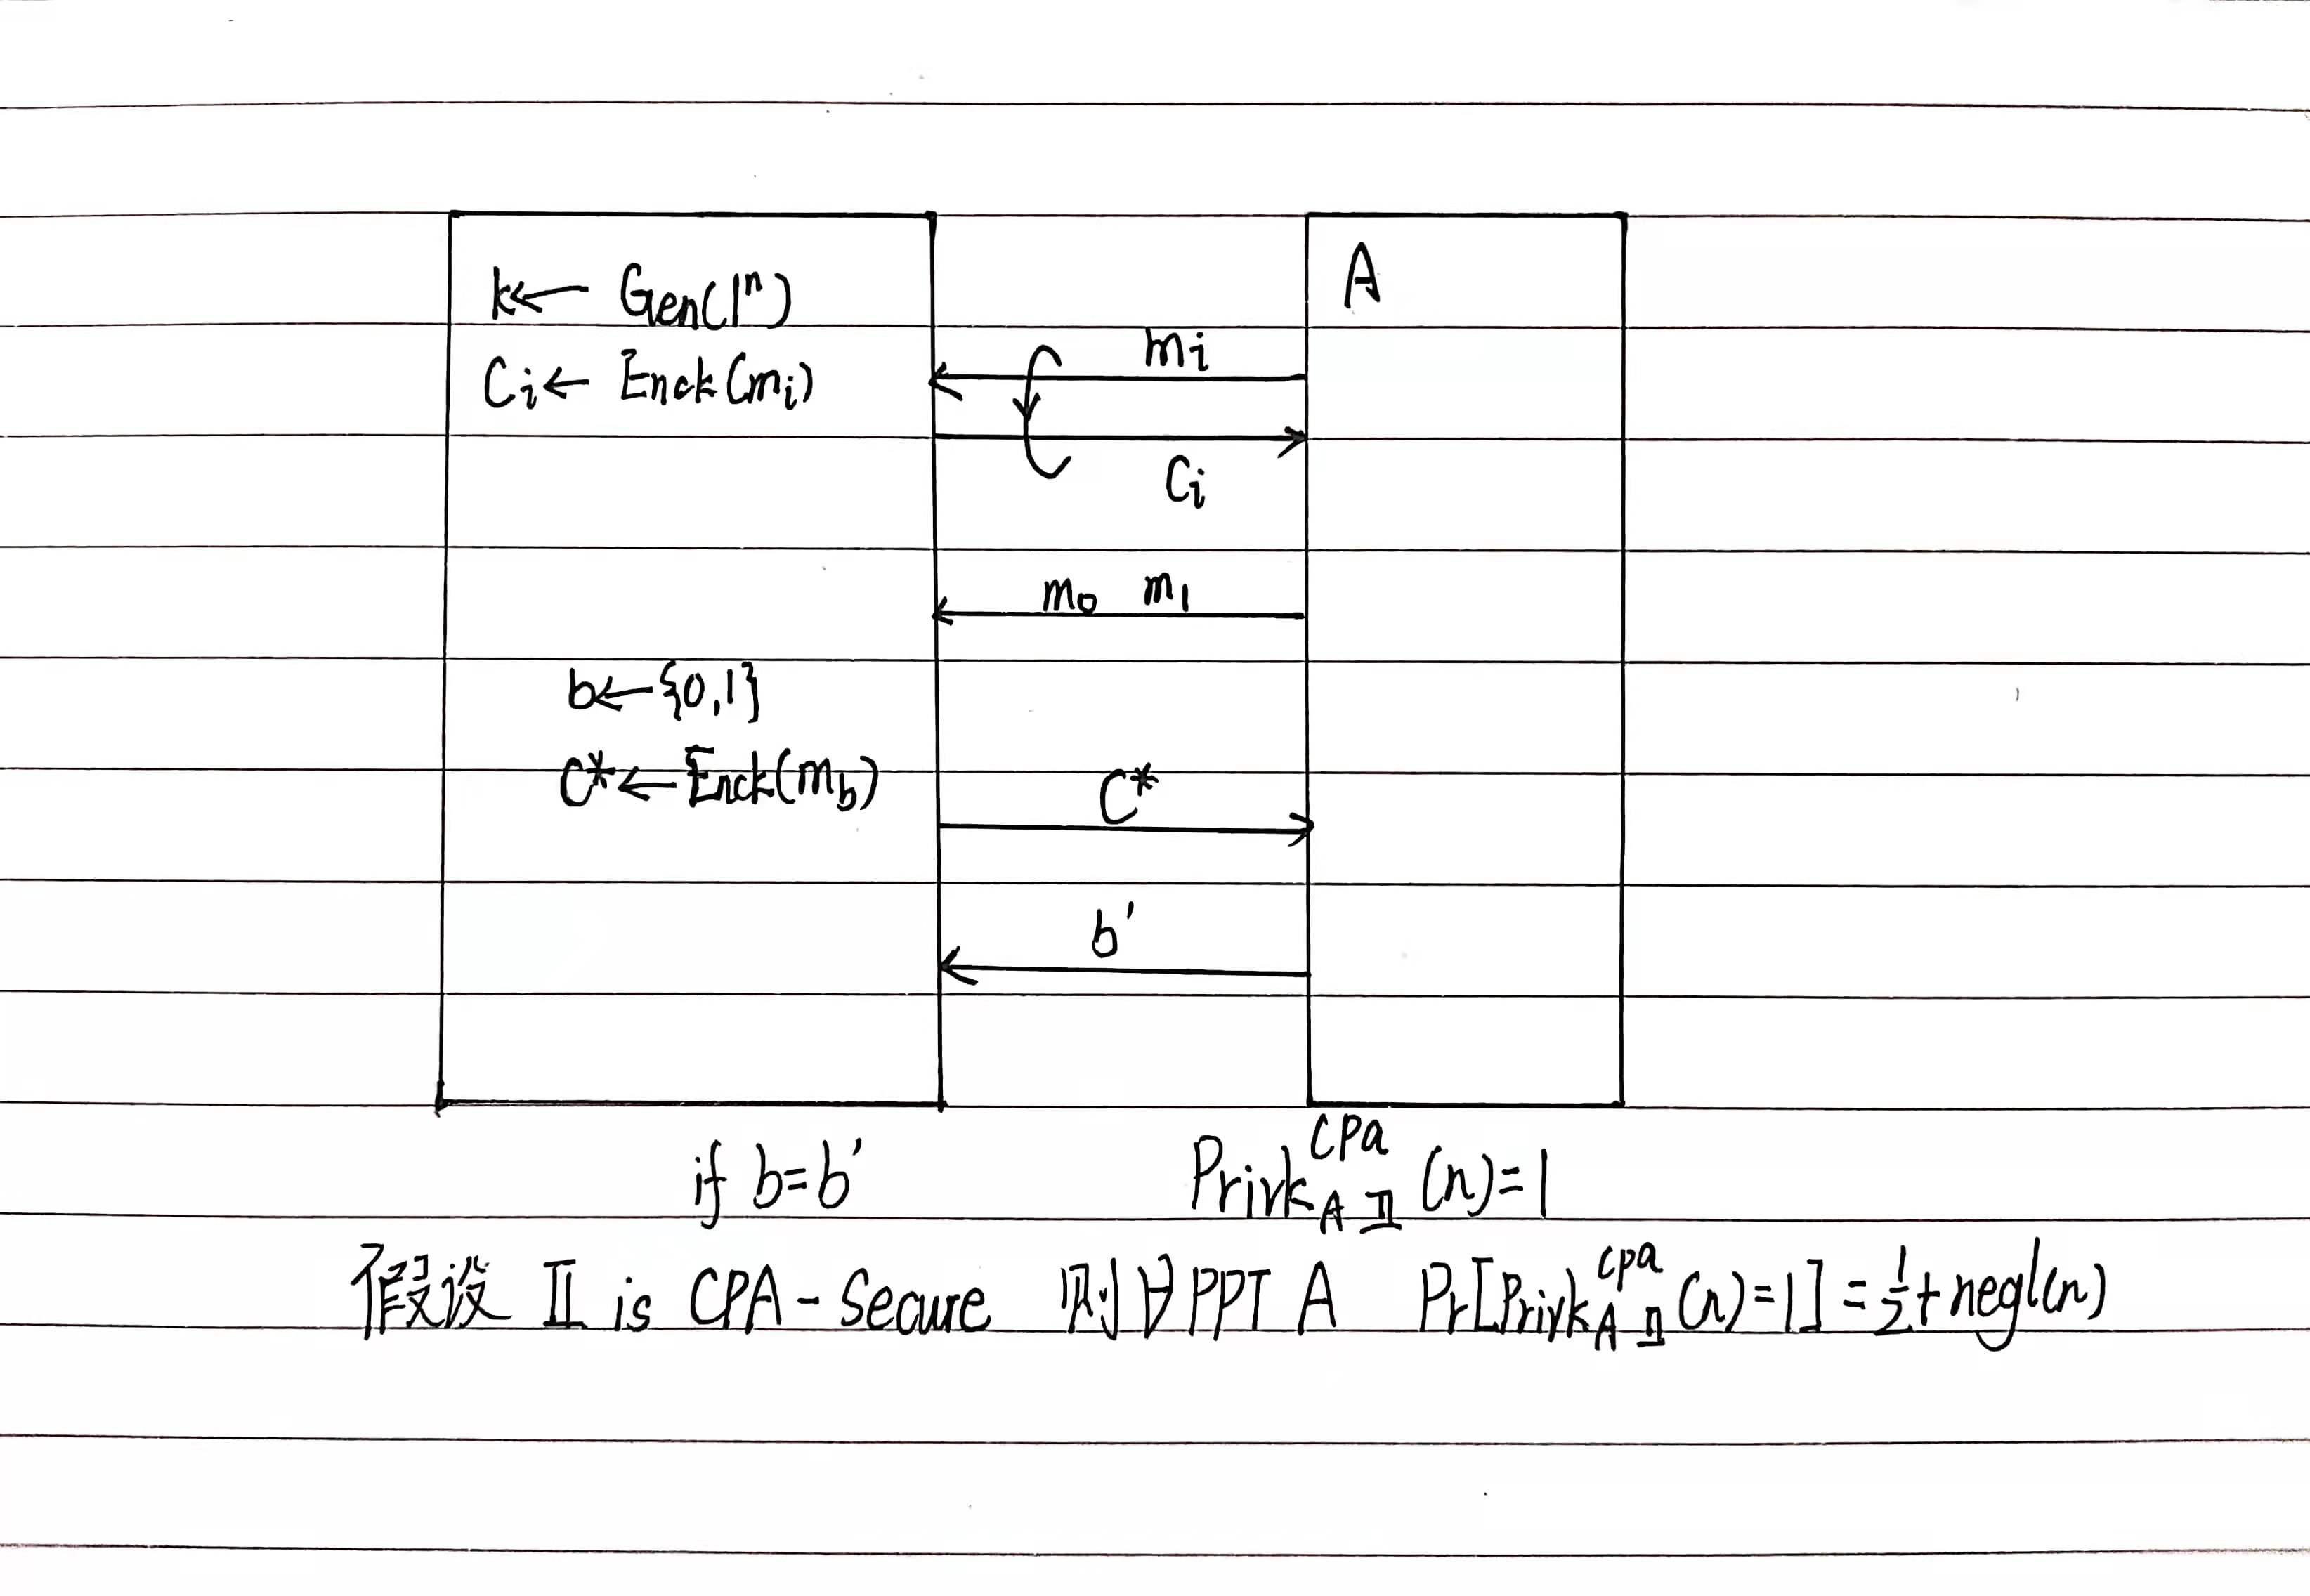 k← Gen(1ⁿ)
A
mi
Ci← Enck(mi)
Ci
m₀ m₁
b←{0,1}
C*←Enck(m_b)
C*
b'
if b=b' Privk^{cpa}_{A Π}(n)=1
假设 Π is CPA-Secure 则∀PPT A Pr[Privk^{cpa}_{A Π}(n)=1]=½+negl(n)